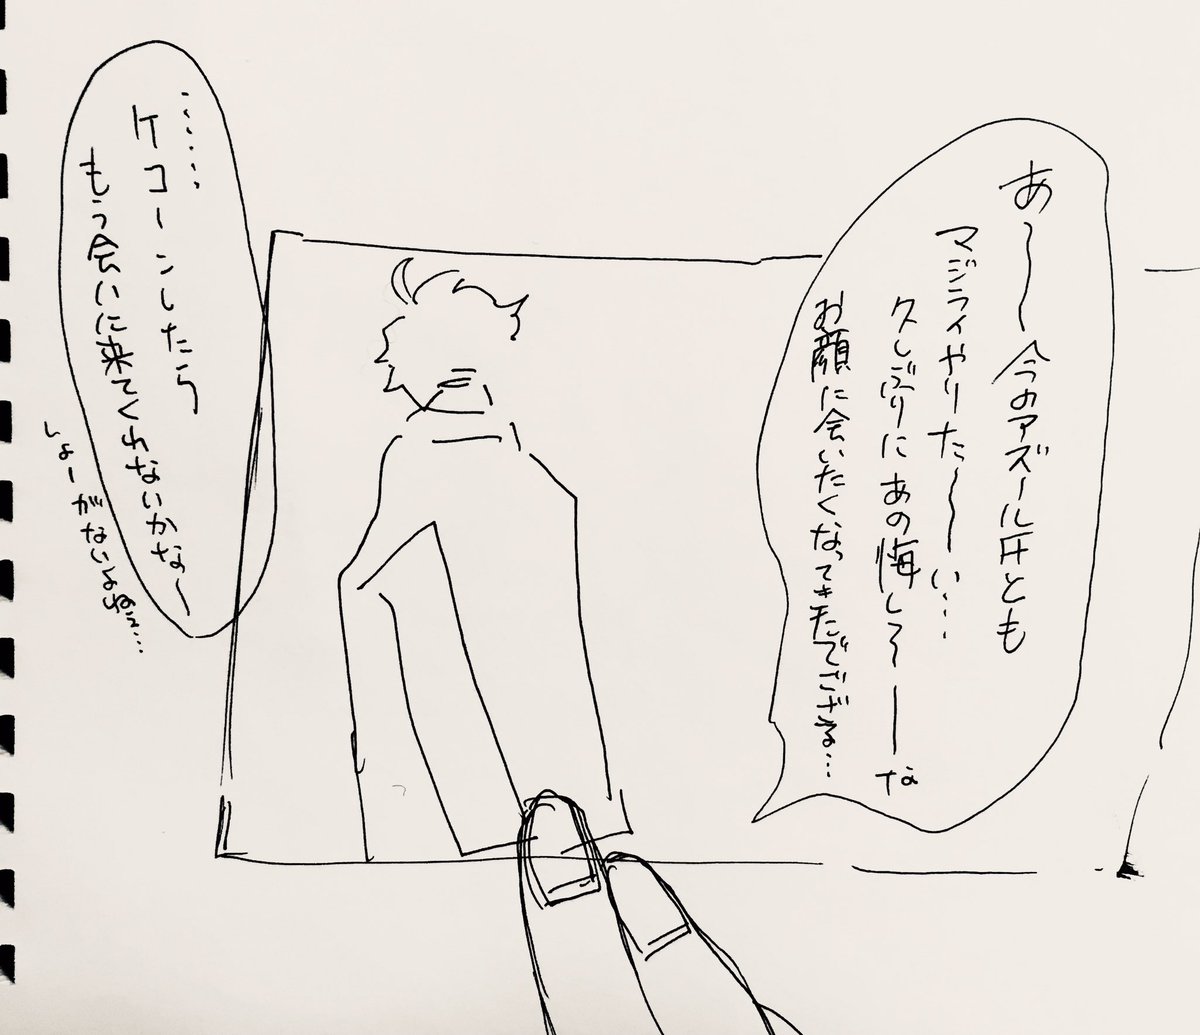 あ〜〜今のアズール氏とも
マジライやりた〜〜い…
久しぶりにあの悔し〜〜ーな
お顔に会いたくなってきたでござる…
……
ケコーンしたら
もう会いに来てくれないかな〜
しょーがないよねぇ…